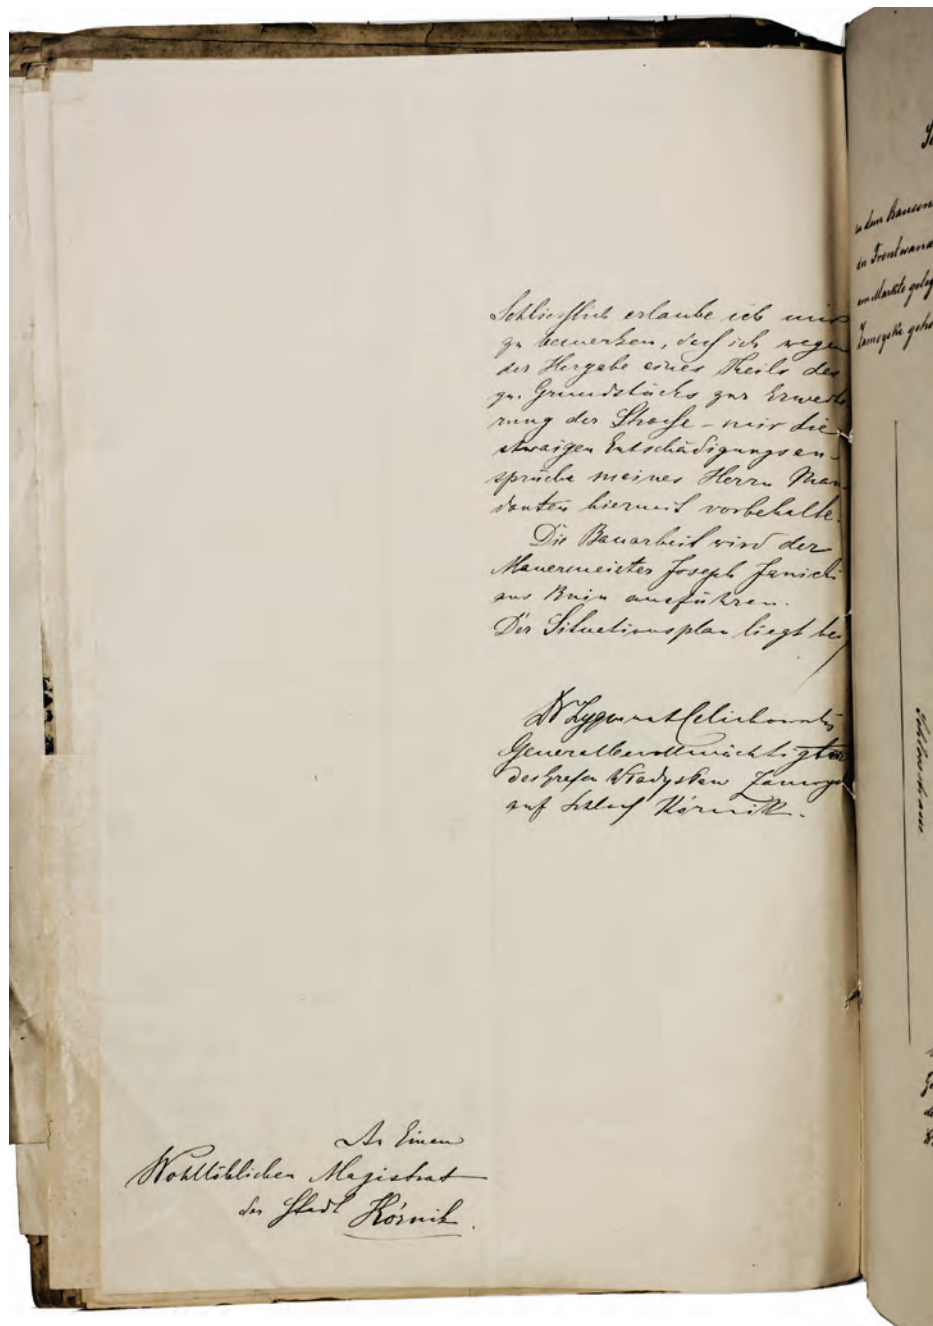 Schließlich erlaube ich mir
zu bemerken, daß ich wegen
der Hergabe eines Theils des
qu. Grundstücks zur Erweite-
rung der Straße – mir die
etwaigen Entschädigungsan-
sprüche meines Herrn Man-
danten hiermit vorbehalte.
Die Bauarbeit wird der
Mauermeister Joseph Janicki
aus Bnin ausführen.
Der Situationsplan liegt bei
Dr Zygmunt Celichowski
Generalbevollmächtigter
des Grafen Władysław Zamoys
auf Schloß Kórnik.
An Einen
Wohllöblichen Magistrat
der Stadt Kórnik.
in dem
der Frontwand
am Markte geleg
Zamoyski geh
Schloßstrasse